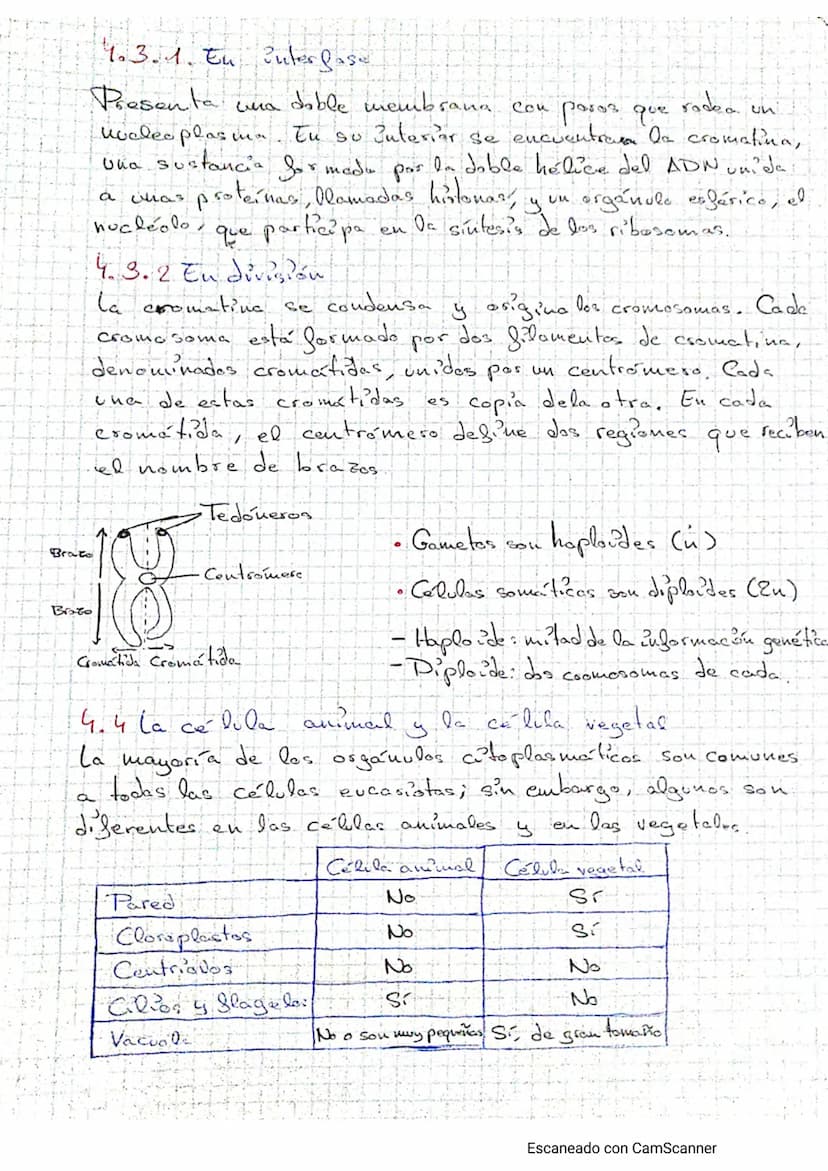 4.3.1. En interfase
Presenta una doble membrana con poros que rodea un
nucleoplasma. En su interior se encuentra la cromatina,
una sustancia formada por la doble hélice del ADN unida
a unas proteínas, llamadas histonas, y un orgánulo esférico, el
nucléolo, que participa en la síntesis de los ribosomas.
4.3.2 En división
La cromatina se condensa y origina los cromosomas. Cada
cromosoma está formado por dos filamentos de cromatina,
denominados cromátidas, unidos por un centrómero. Cada
una de estas cromátidas es copia dela otra. En cada
cromátida, el centrómero define dos regiones que reciben
el nombre de brazos
Telómeros
Brazo
Centrómero
Brazo
Cromátida Cromátida
• Gametos son haploides (n)
• Células somáticas son diploides (2n)
- Haploide: mitad de la información genética
- Diploide: dos cromosomas de cada.
4.4 La célula animal y la célula vegetal
La mayoría de los orgánulos citoplasmáticos son comunes
a todas las células eucariotas; sin embargo, algunos son
diferentes en las células animales y en las vegetales.
Célula animal Célula vegetal
Pared No Sí
Cloroplastos No Sí
Centriolos No No
Cilios y flagelos Sí No
Vacuola No o son muy pequeñas Sí, de gran tamaño
Escaneado con CamScanner